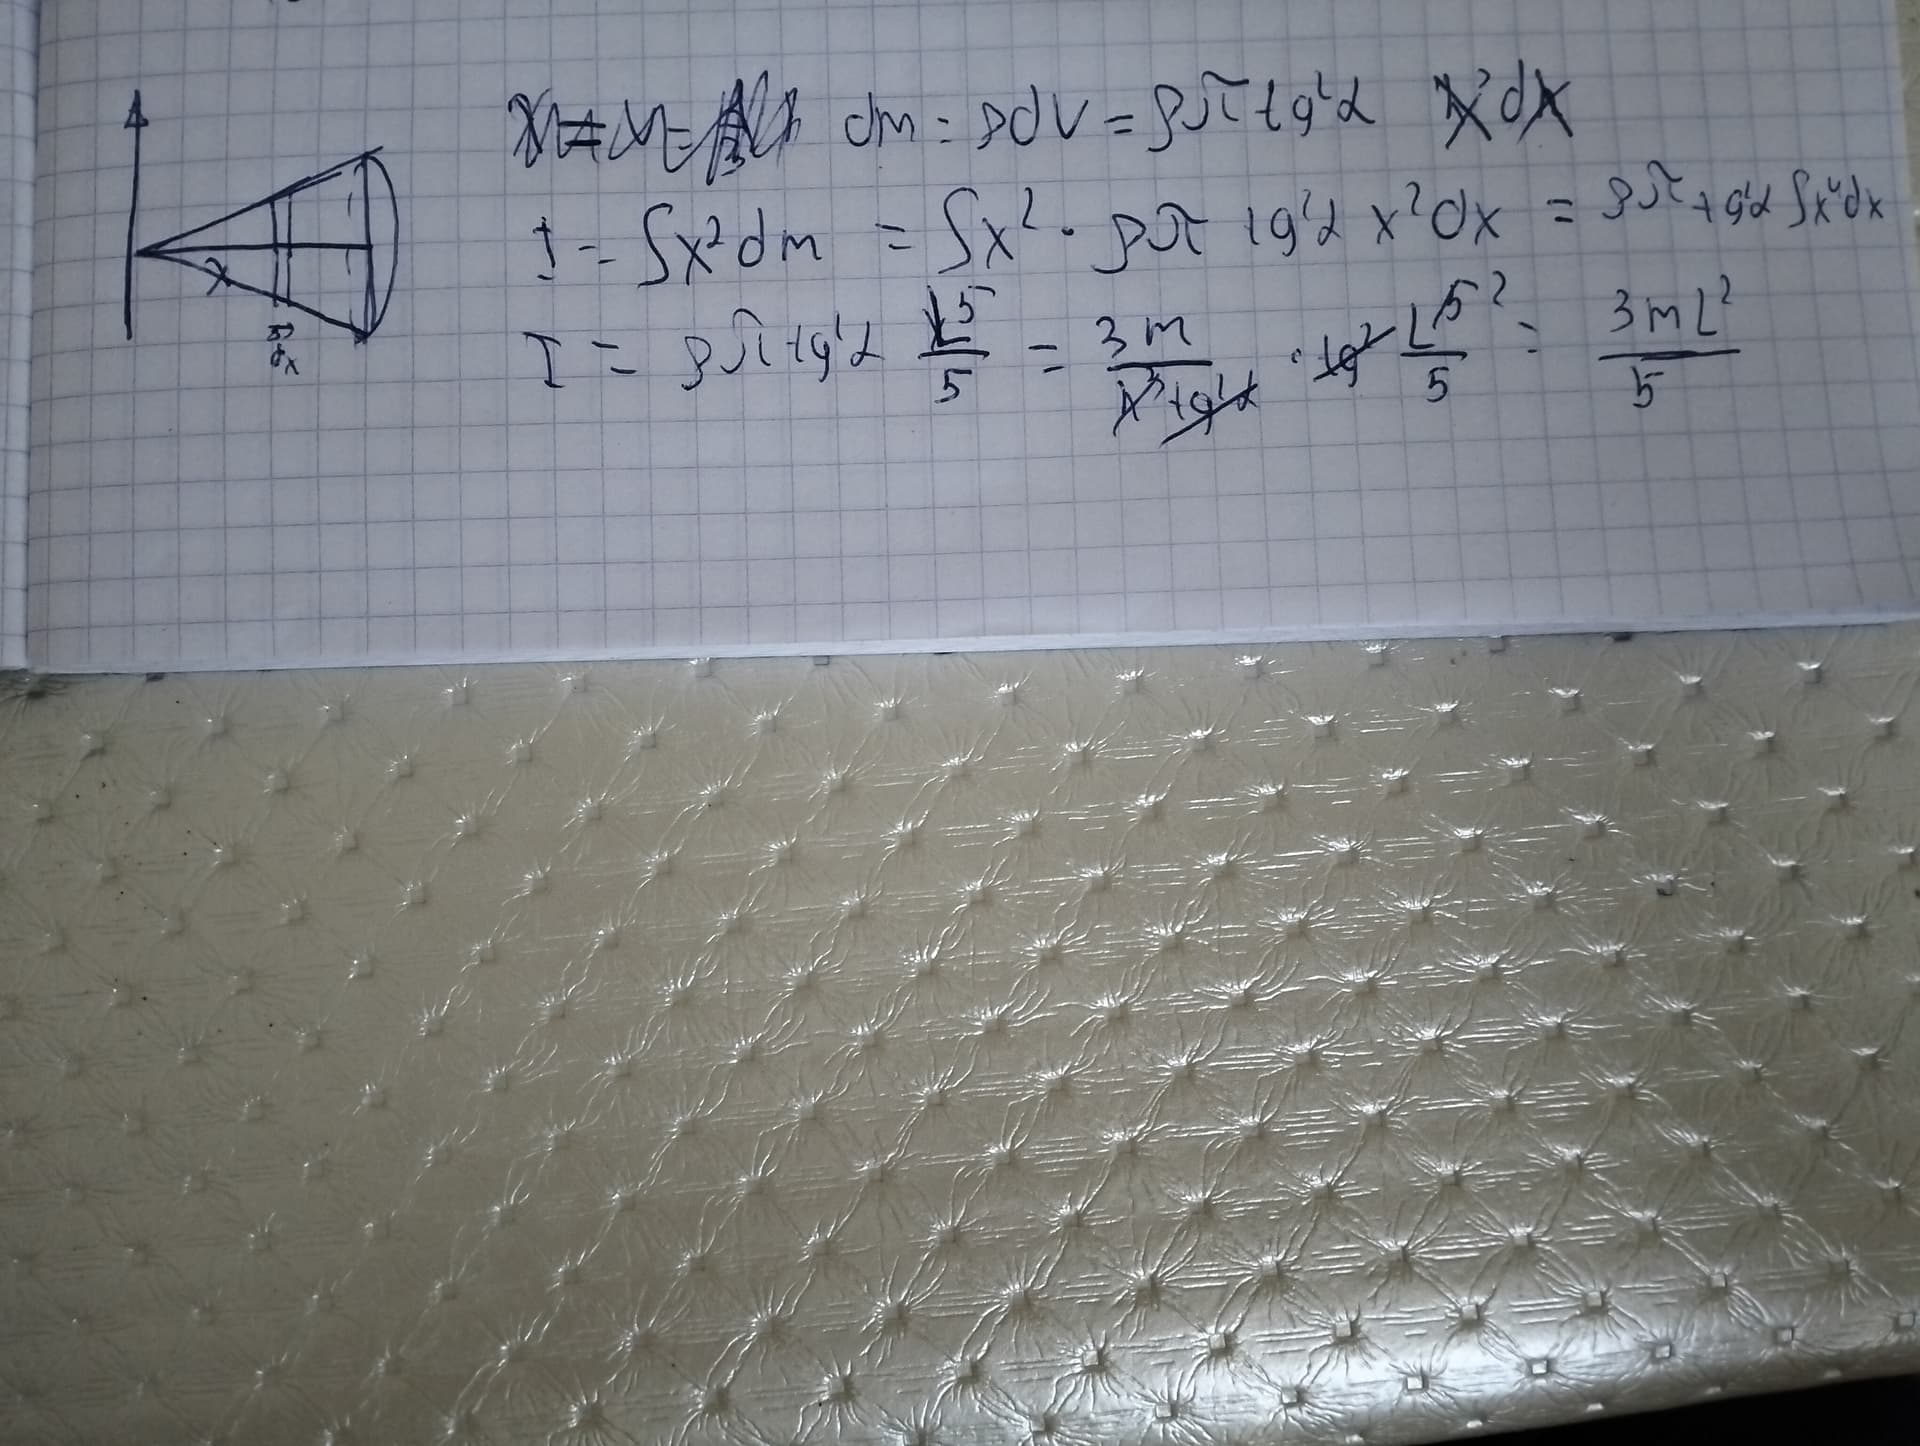 dm = ρdV = ρπ tg²α x²dx
I = ∫x²dm = ∫x² · ρπ tg²α x²dx = ρπ tg²α ∫x⁴dx
x
dx
I = ρπ tg²α L⁵/5 = 3m/(L³ tg²α) · tg² L⁵ ²/5 = 3mL²/5